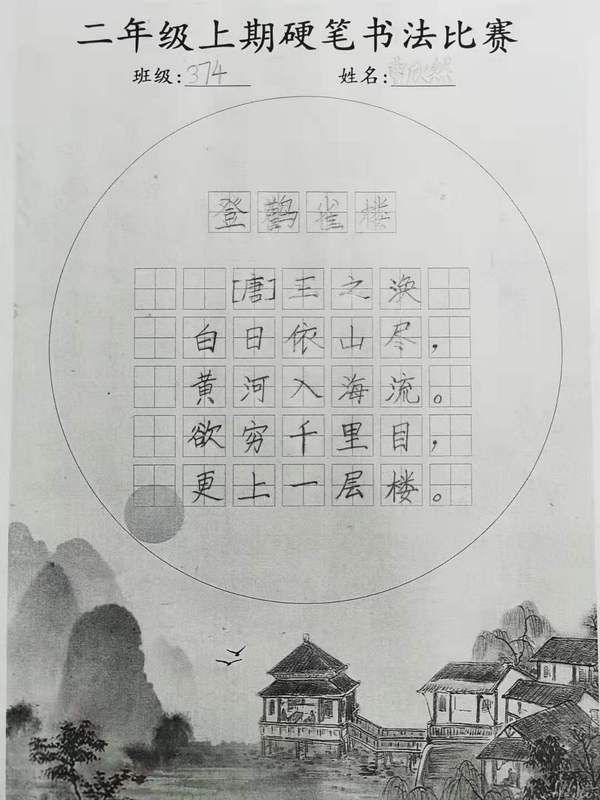 二年级上期硬笔书法比赛
班级:374 姓名:曹欣然
登鹳雀楼
[唐]王之涣
白日依山尽，
黄河入海流。
欲穷千里目，
更上一层楼。